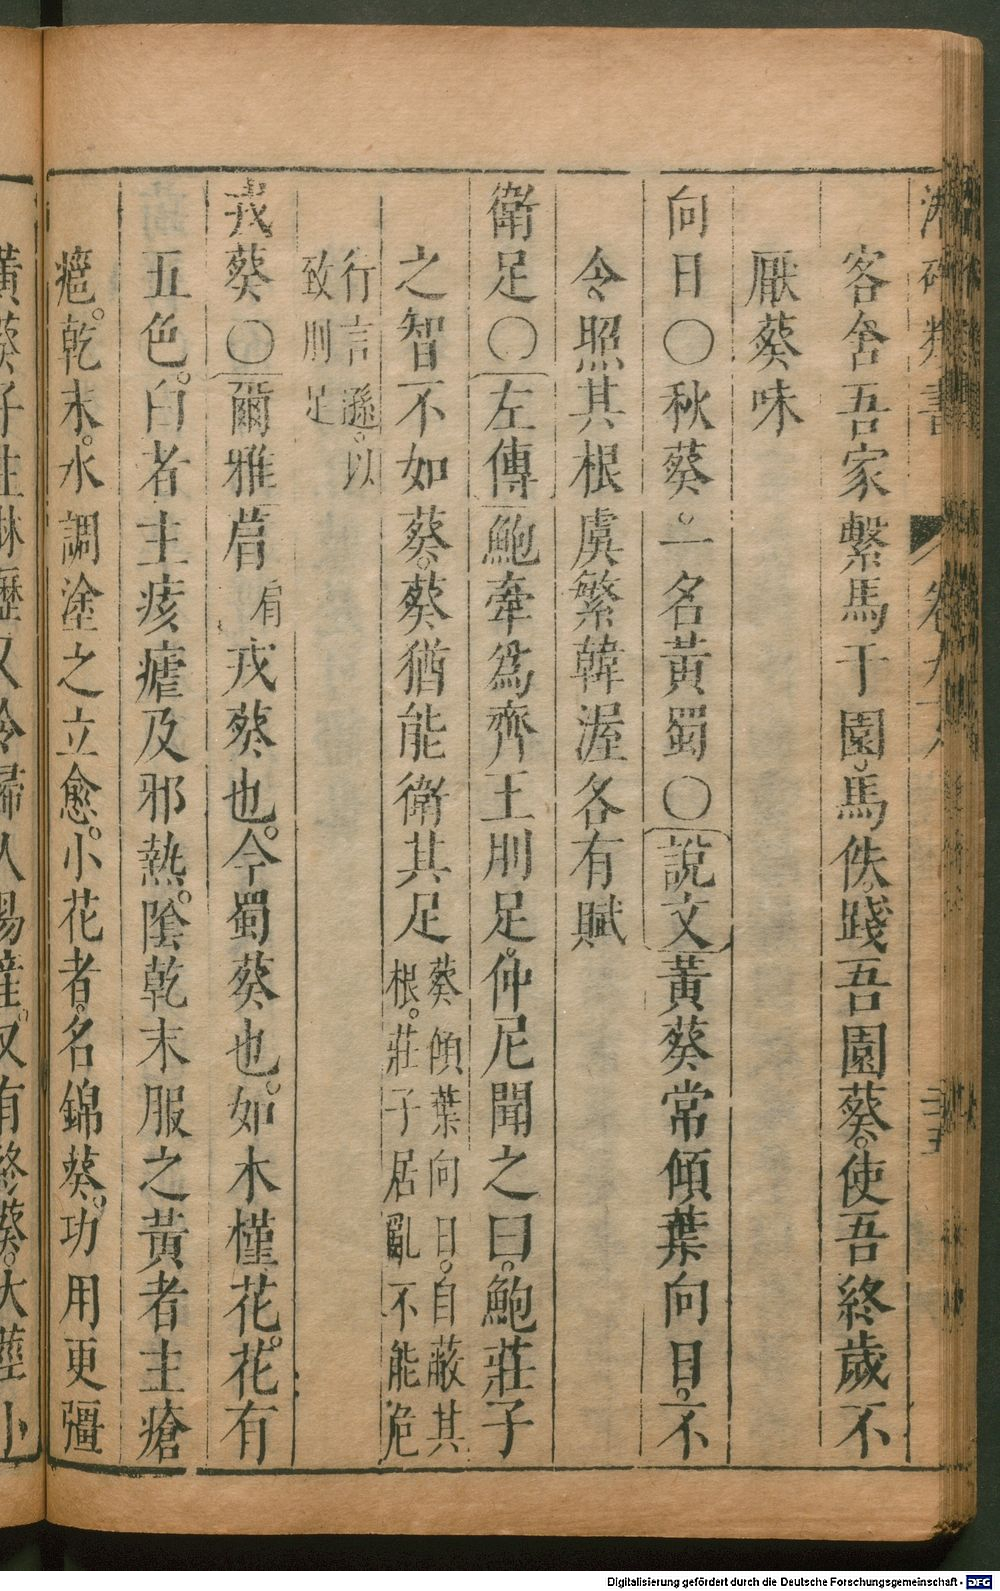 客舍吾家繫馬于園。馬佚。踐吾園葵。使吾終歲不
厭葵味
向日〇秋葵。一名黃蜀〇說文黃葵常傾葉向日。不
令照其根虞繁韓渥各有賦
衛足〇左傳鮑牽爲齊王刖足。仲尼聞之曰。鮑莊子
之智不如葵。葵猶能衛其足
葵傾葉向日。自蔽其
根。莊子居亂不能危
行言遜。以
致刖足
戎葵〇爾雅菺
肩
戎葵也。今蜀葵也。如木槿花。花有
五色。白者主痎瘧及邪熱。陰乾末服之黃者主瘡
疮。乾末。水調塗之立愈。小花者。名錦葵。功用更彊
Digitalisierung gefördert durch die Deutsche Forschungsgemeinschaft - DFG